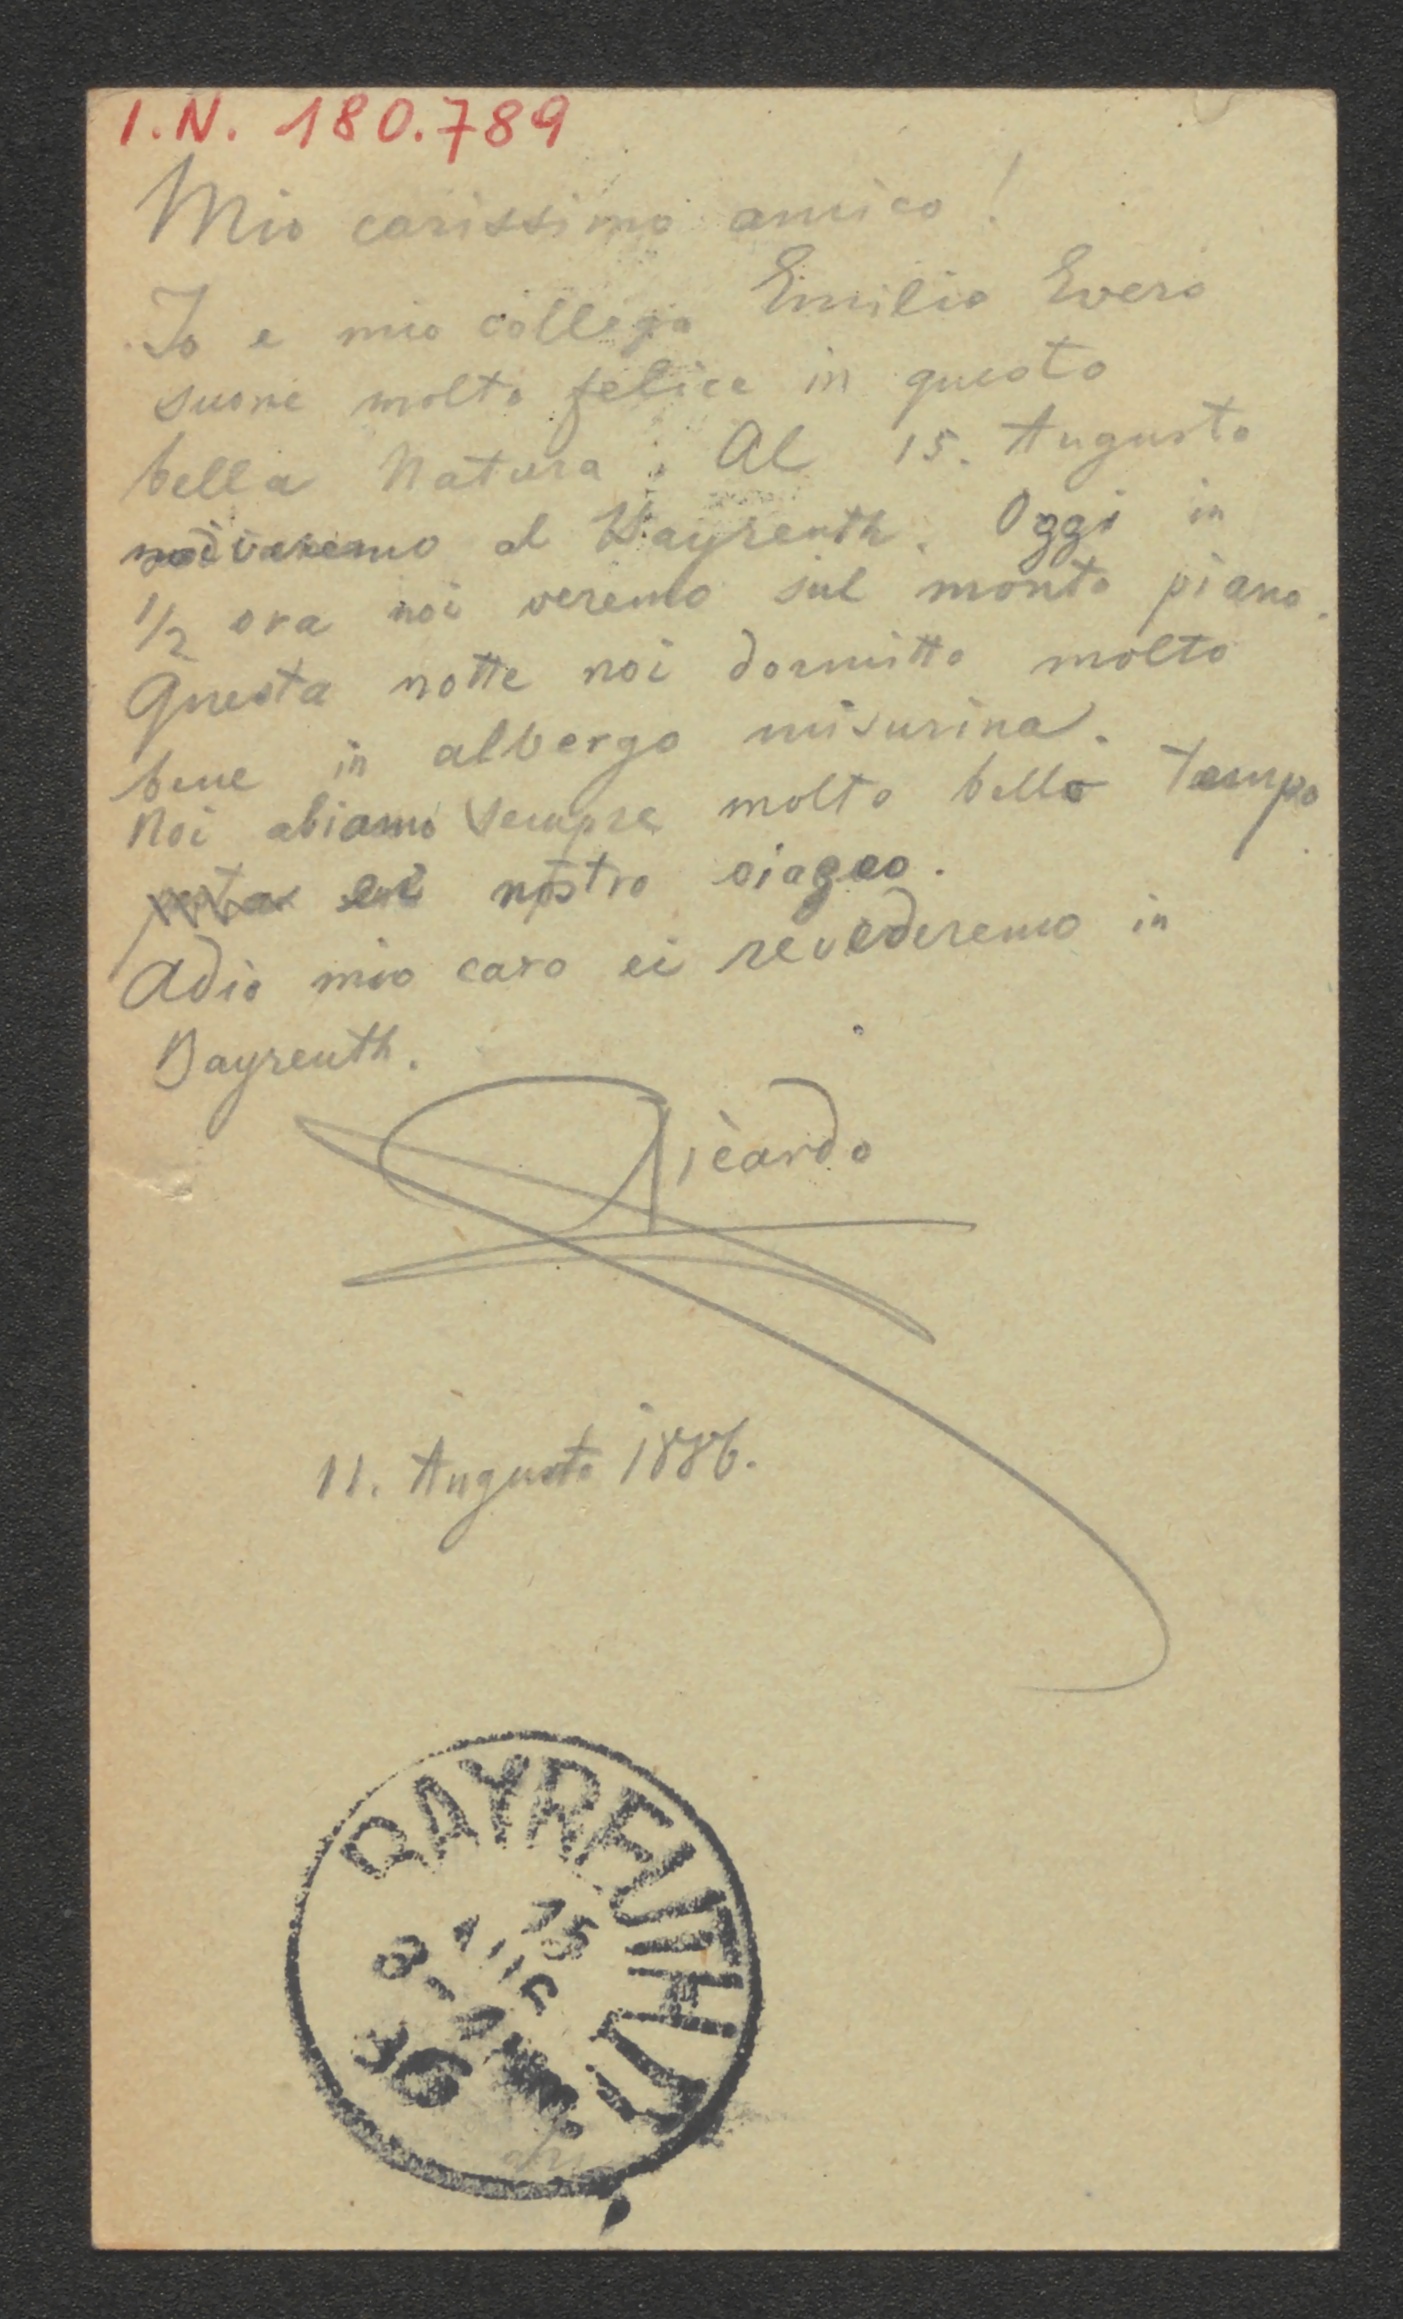 I.N. 180.789
Mio carissimo amico!
Io e mio collega Emilio Evero
suone molto felice in questo
bella Natura. Al 15. Augusto
noi varemo al Bayreuth. Oggi in
1/2 ora noi veremo sul monto piano.
Questa notte noi dormitto molto
bene in albergo misurina.
Noi abiamo sempre molto bello tempo
nostro viageo.
Adio mio caro ci revederemo in
Bayreuth.
Ricardo
11. Augusto 1886.
BAYREUTH
15
AUG
8-
86